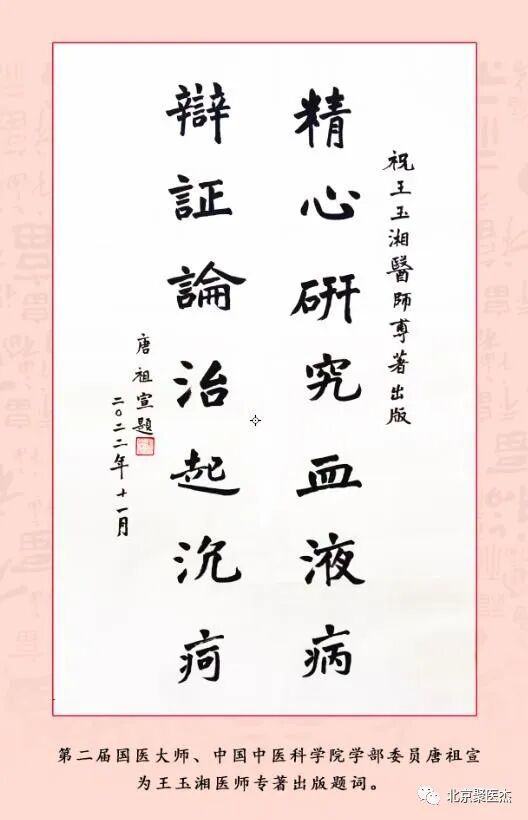 祝王玉湘醫師專著出版
精心研究血液病
辯証論治起沉疴
唐祖宣題
二〇二二年十一月
第二届国医大师、中国中医科学院学部委员唐祖宣
为王玉湘医师专著出版题词。
北京聚医杰